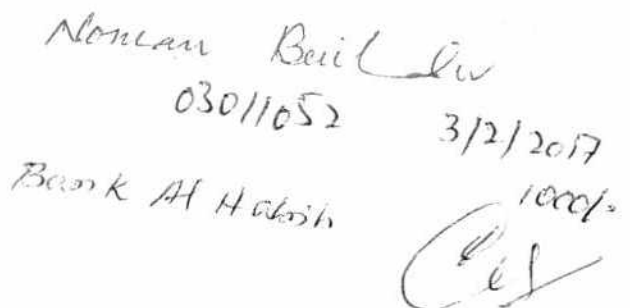 Noman Builder
03011052 3/2/2017
Bank Al Habib 1000/-